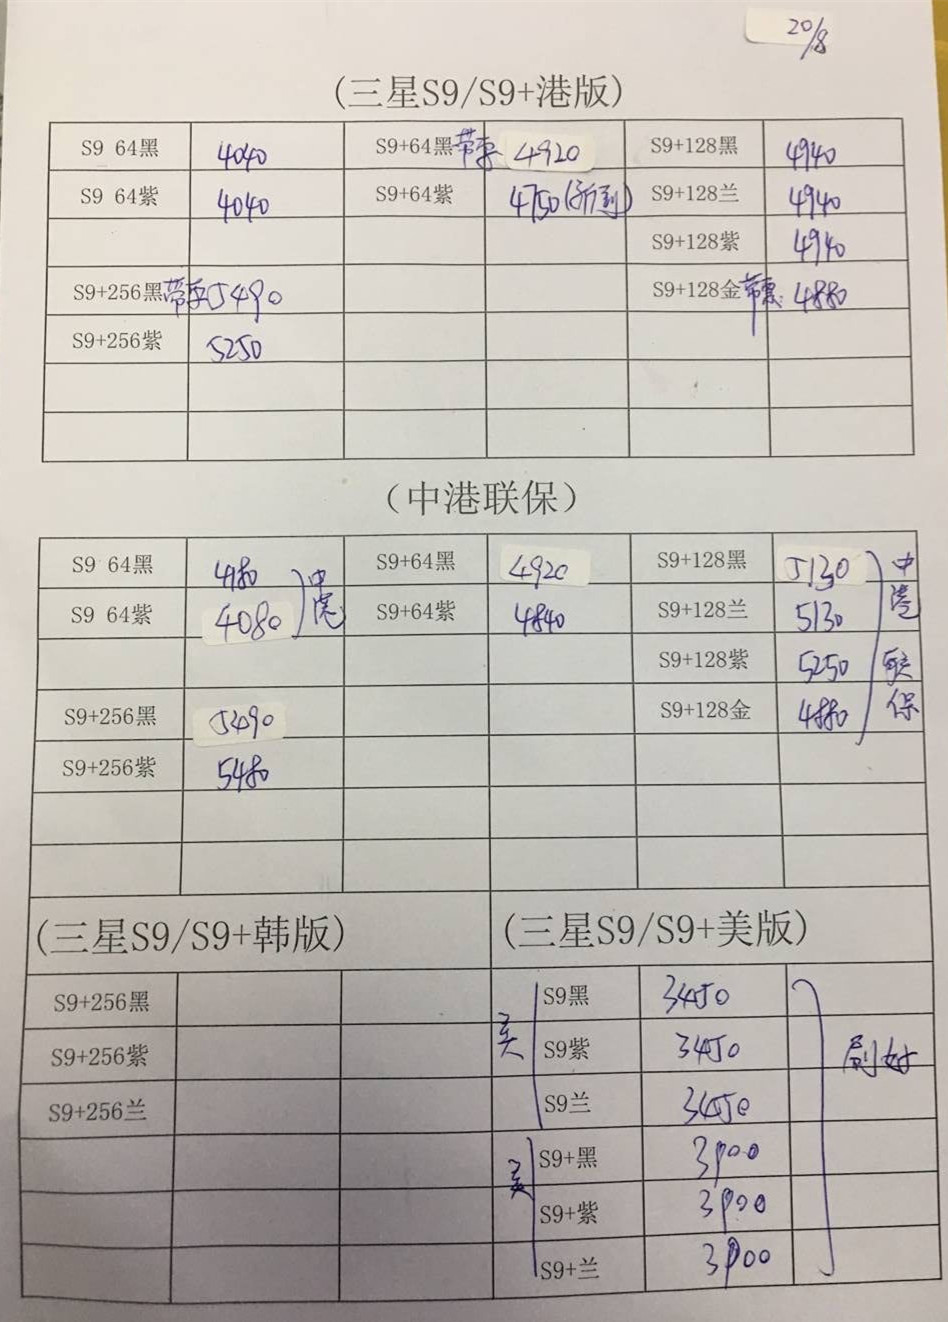 20/8
(三星S9/S9+港版)
S9 64黑 4040 S9+64黑 带票 4920 S9+128黑 4940
S9 64紫 4040 S9+64紫 4750(新到) S9+128兰 4940
S9+128紫 4940
S9+256黑 带票 5490 S9+128金 带票: 4880
S9+256紫 5250
(中港联保)
S9 64黑 4180 S9+64黑 4920 S9+128黑 5130
S9 64紫 4080 中港 S9+64紫 4840 S9+128兰 5130
S9+128紫 5250 中港联保
S9+256黑 5490 S9+128金 4880
S9+256紫 5480
(三星S9/S9+韩版) (三星S9/S9+美版)
S9+256黑 S9黑 3450
S9+256紫 美 S9紫 3450 刷好
S9+256兰 S9兰 3450
S9+黑
美 S9+紫
S9+兰